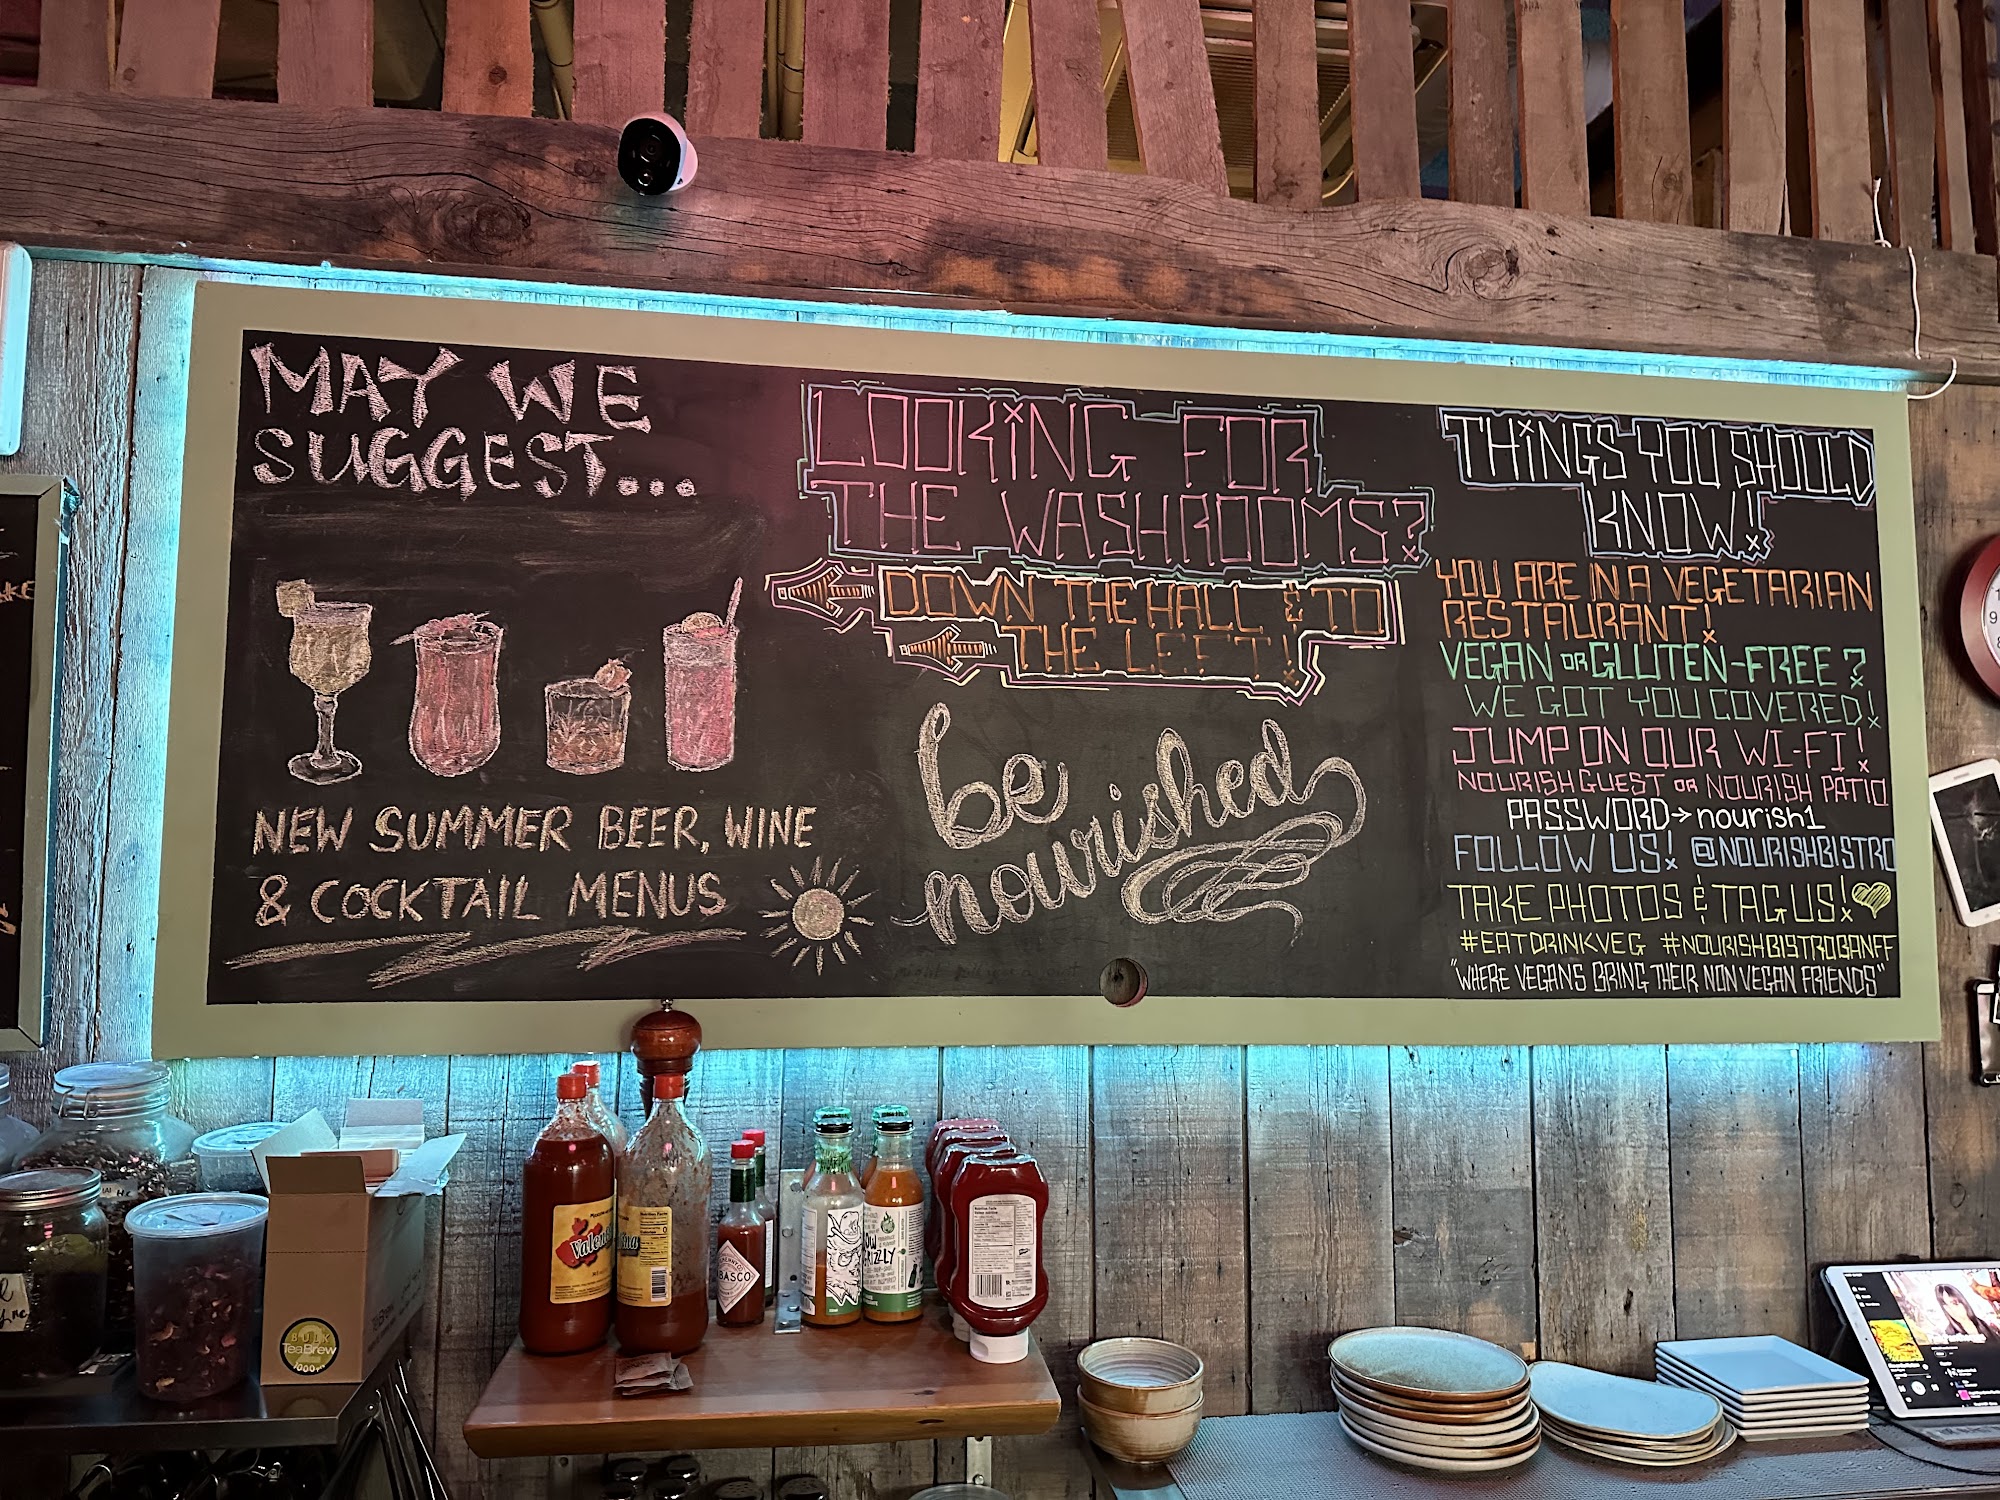 MAY WE
SUGGEST...
NEW SUMMER BEER, WINE
& COCKTAIL MENUS
LOOKING FOR
THE WASHROOMS?
DOWN THE HALL & TO
THE LEFT!
be
nourished
THINGS YOU SHOULD
KNOW!
YOU ARE IN A VEGETARIAN
RESTAURANT!
VEGAN OR GLUTEN-FREE?
WE GOT YOU COVERED!
JUMP ON OUR WI-FI!
NOURISH GUEST OR NOURISH PATIO
PASSWORD→nourish1
FOLLOW US! @NOURISHBISTRO
TAKE PHOTOS & TAG US!
#EATDRINKVEG #NOURISHBISTROBANFF
"WHERE VEGANS BRING THEIR NON VEGAN FRIENDS"
BULK
TeaBrew
Nutrition Facts